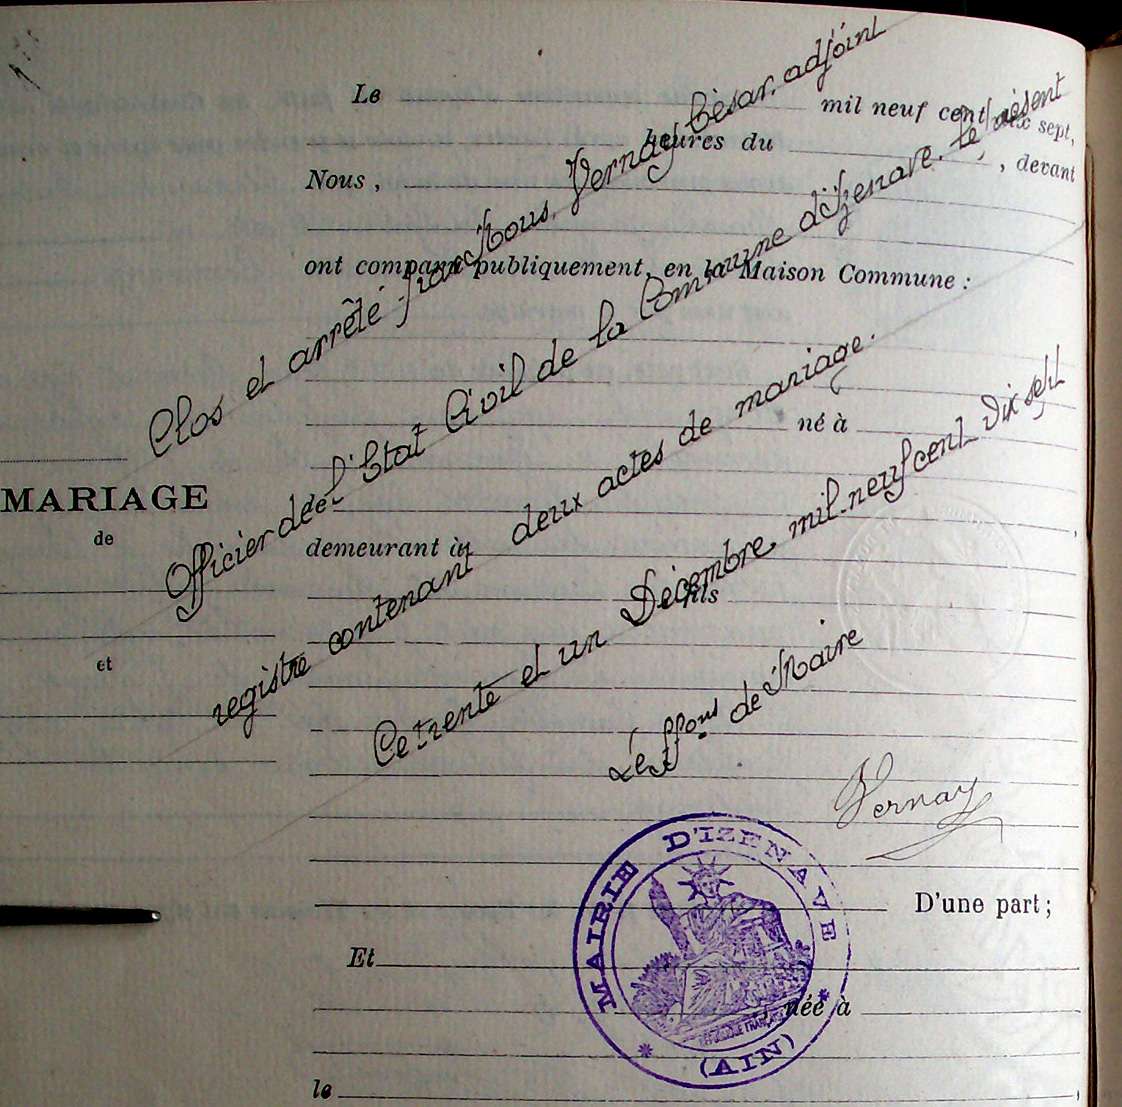 Le mil neuf cent dix sept,
heures du , devant
Nous ,
ont comparu publiquement, en la Maison Commune :
né à
MARIAGE
de
demeurant à
fils
et
D'une part ;
Et
née à
le
Clos et arrêté par Nous, Vernay César, adjoint
Officier de de l'Etat Civil de la Commune d'Izenave, le présent
registre contenant deux actes de mariage.
Ce trente et un Décembre, mil neuf cent dix sept
Le ffons de Maire
Vernay
MAIRIE D'IZENAVE
RÉPUBLIQUE FRANÇAISE
* (AIN) *